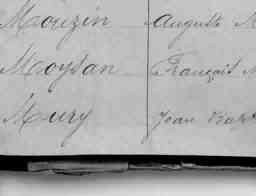 Mouzin Auguste M
Moysan François M
Mury Jean Bapt